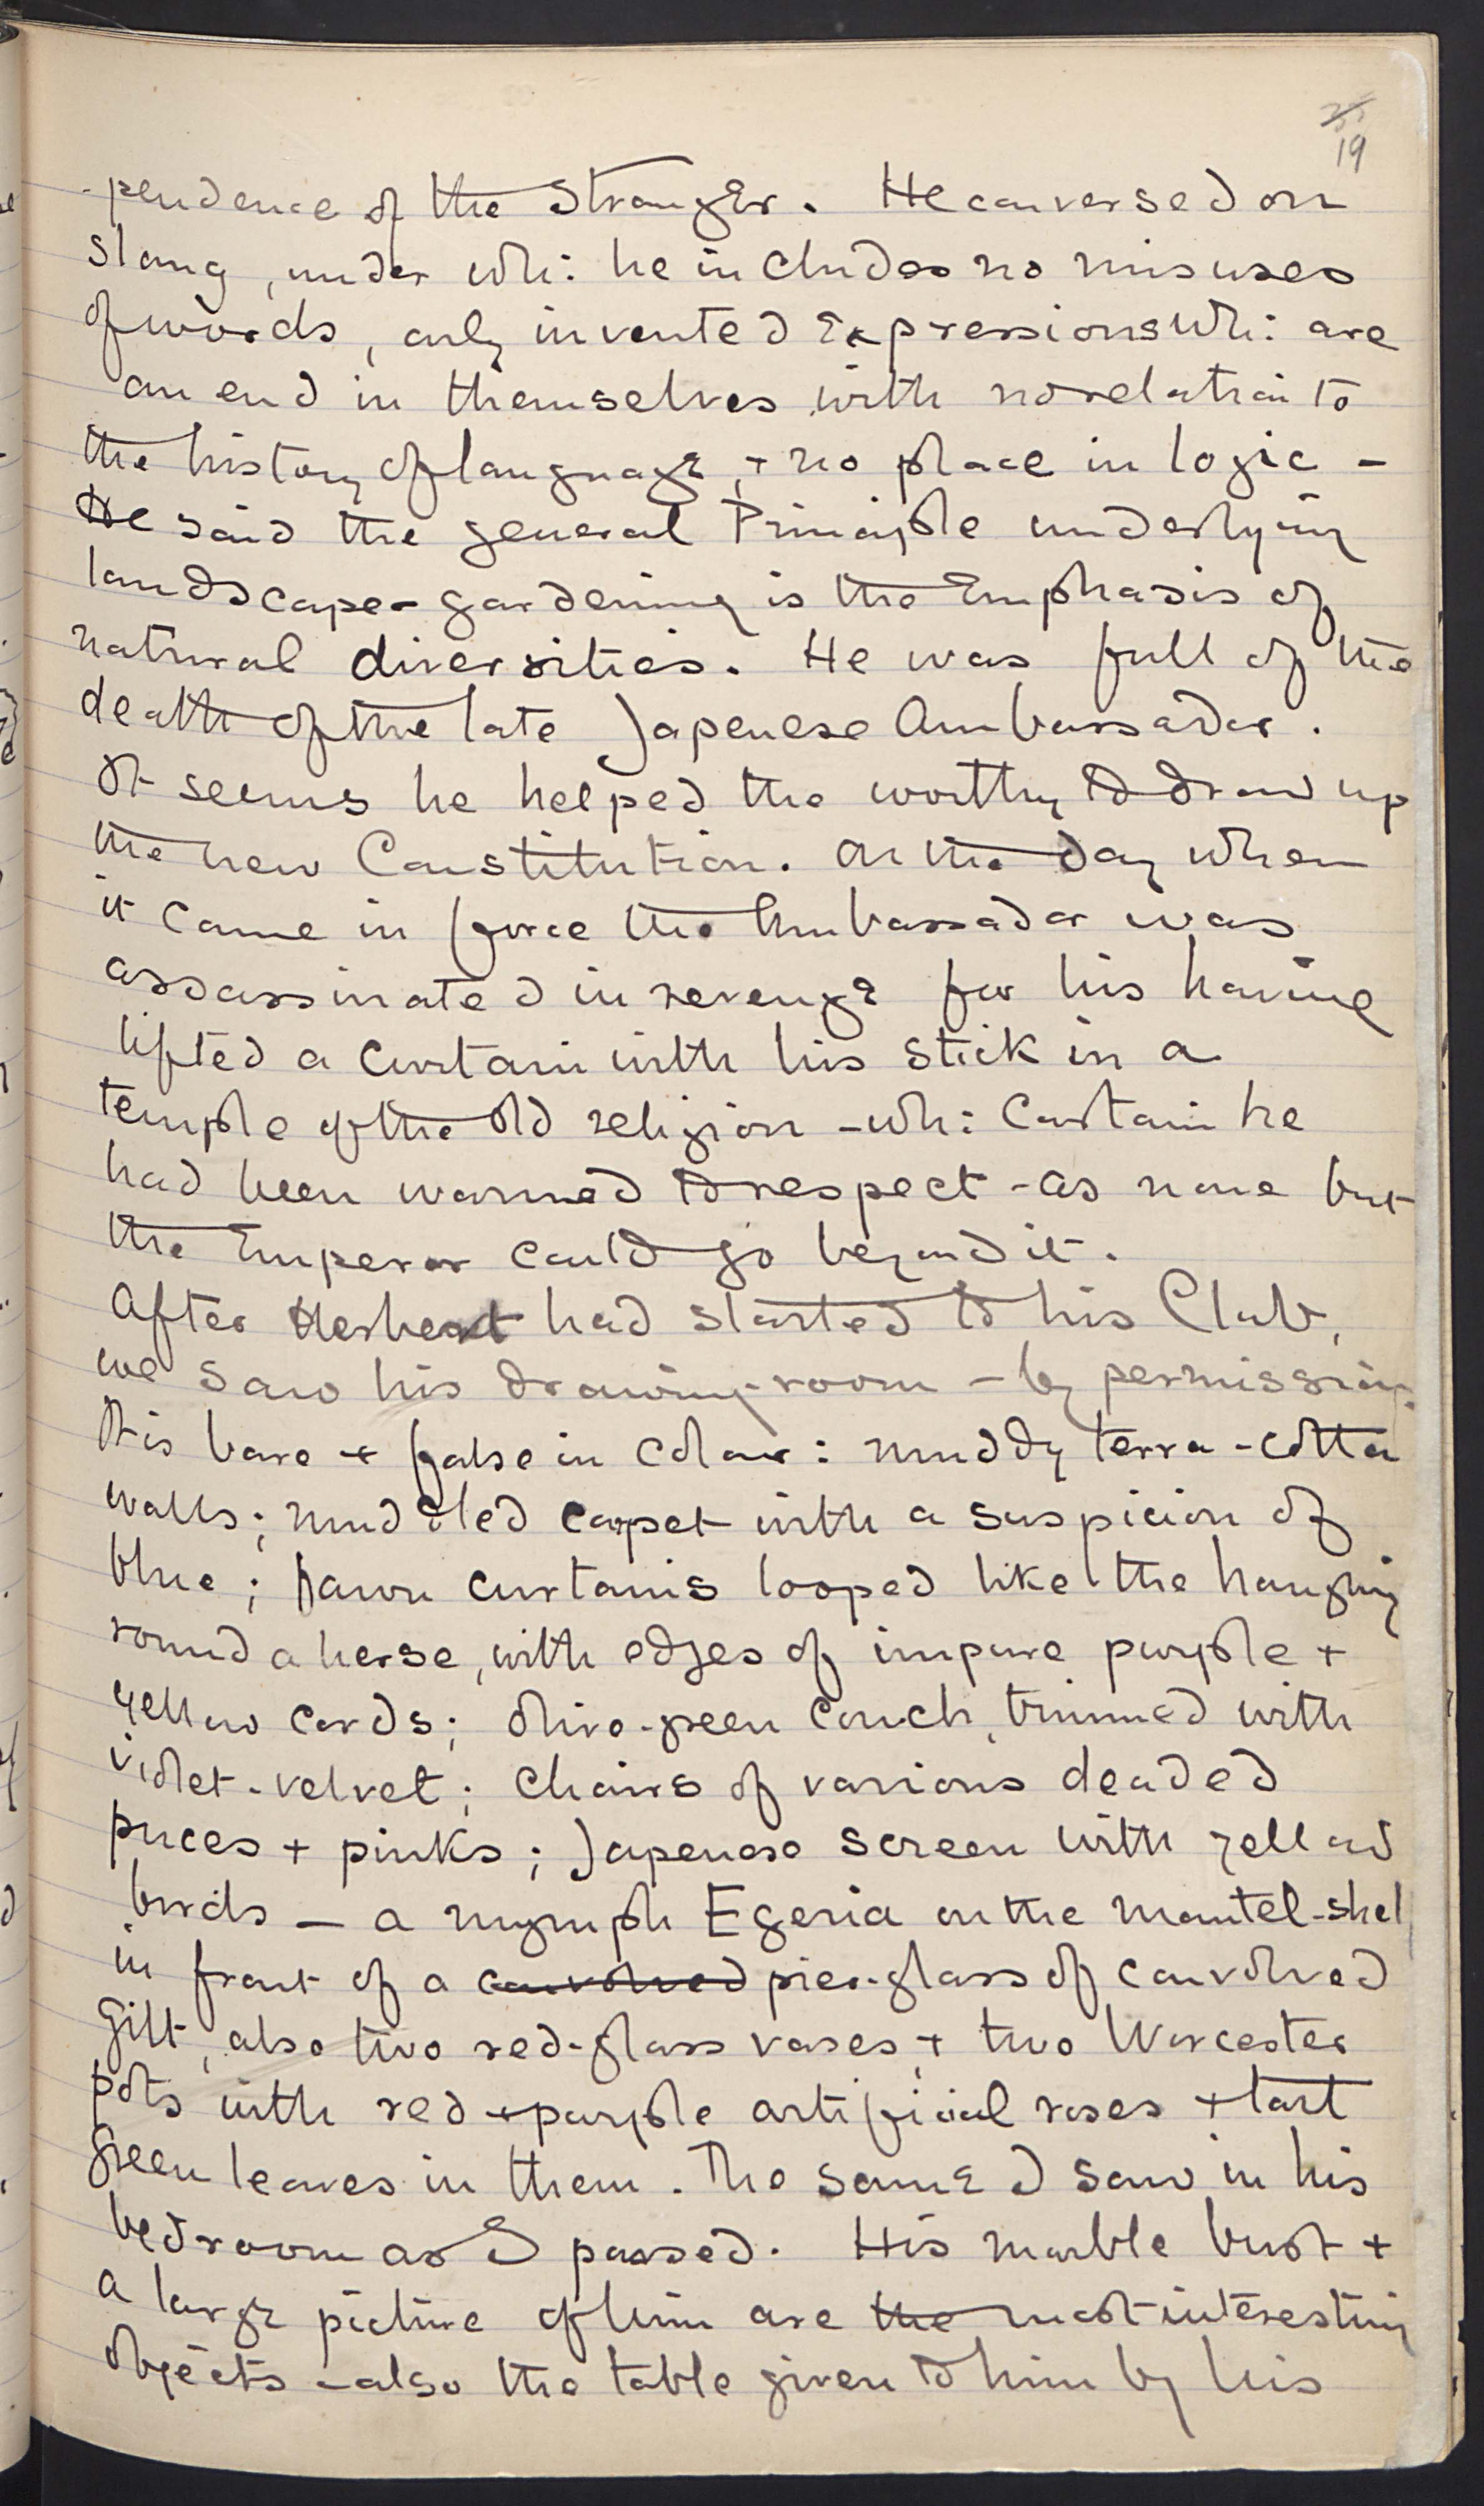 19
-pendence of the Stranger. He conversed on
slang, under whi: he includes no misuses
of words, only invented Expressions whi: are
an end in themselves with no relation to
the history of language, + no place in logic -
He said the general Principle underlying
landscape-gardening is the Emphasis of
natural diversities. He was full of the
death of the late Japenese Ambassador.
It seems he helped the worthy to draw up
the new Constitution. On the day when
it came in force the Ambassador was
assassinated in revenge for his having
lifted a curtain with his stick in a
temple of the old religion - whi: Curtain he
had been warned to respect - as none but
the Emperor could go beyond it.
After Herbert had started to his Club,
we saw his drawing-room - by permission.
It is bare + false in colour: muddy terra-cotta
walls; muddled carpet with a suspicion of
blue; fawn curtains looped like the hanging
round a herse, with edges of impure purple +
yellow cords; olive-green couch, trimmed with
violet-velvet; chairs of various deaded
puces + pinks; Japenese screen with yellow
birds — a nymph Egeria on the mantel-shel
in front of a convolved pier-glass of convolved
gilt, also two red-glass vases, + two Worcester
pots with red + purple artificial roses + tart
green leaves in them. The same I saw in his
bedroom as I passed. His marble bust +
a large picture of him are the most interesting
objects - also the table given to him by his